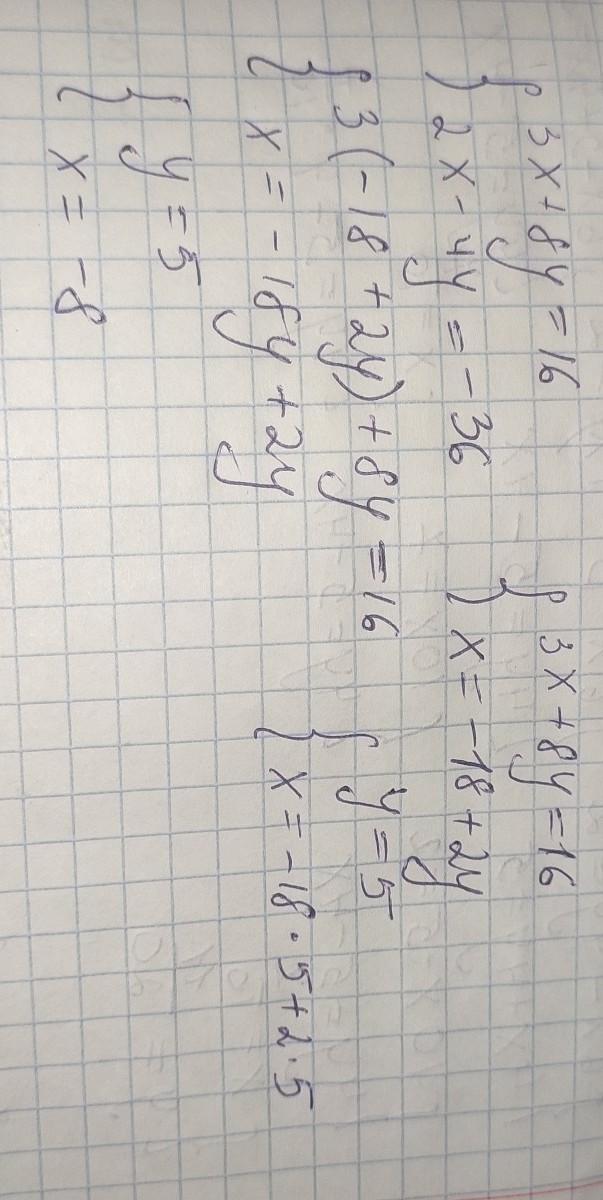 3x+8y=16
2x-4y=-36
3x+8y=16
x=-18+2y
3(-18+2y)+8y=16
x=-18y+2y
y=5
x=-18·5+2·5
y=5
x=-8